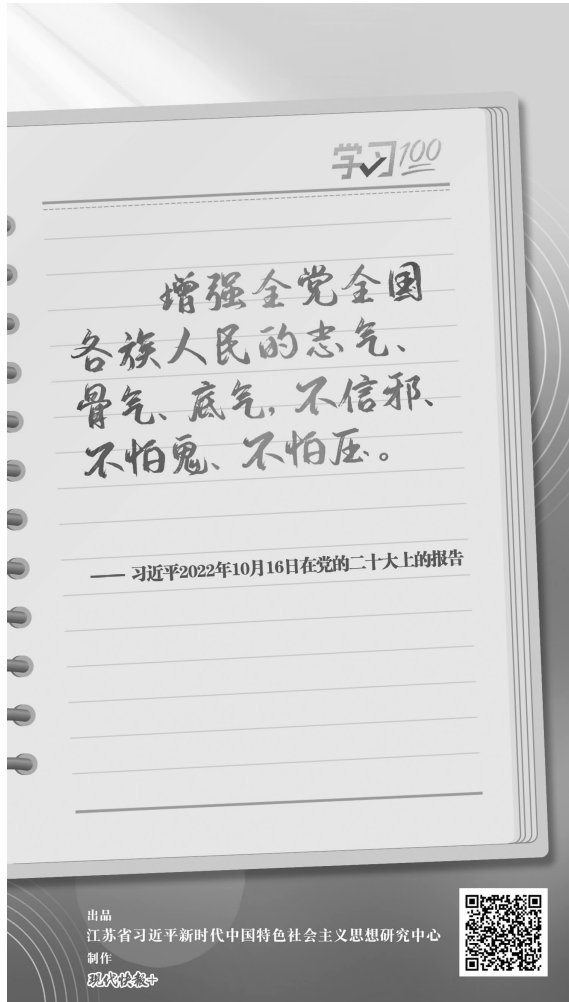 学习100
增强全党全国
各族人民的志气、
骨气、底气,不信邪、
不怕鬼、不怕压。
—— 习近平2022年10月16日在党的二十大上的报告
出品
江苏省习近平新时代中国特色社会主义思想研究中心
制作
现代快报+